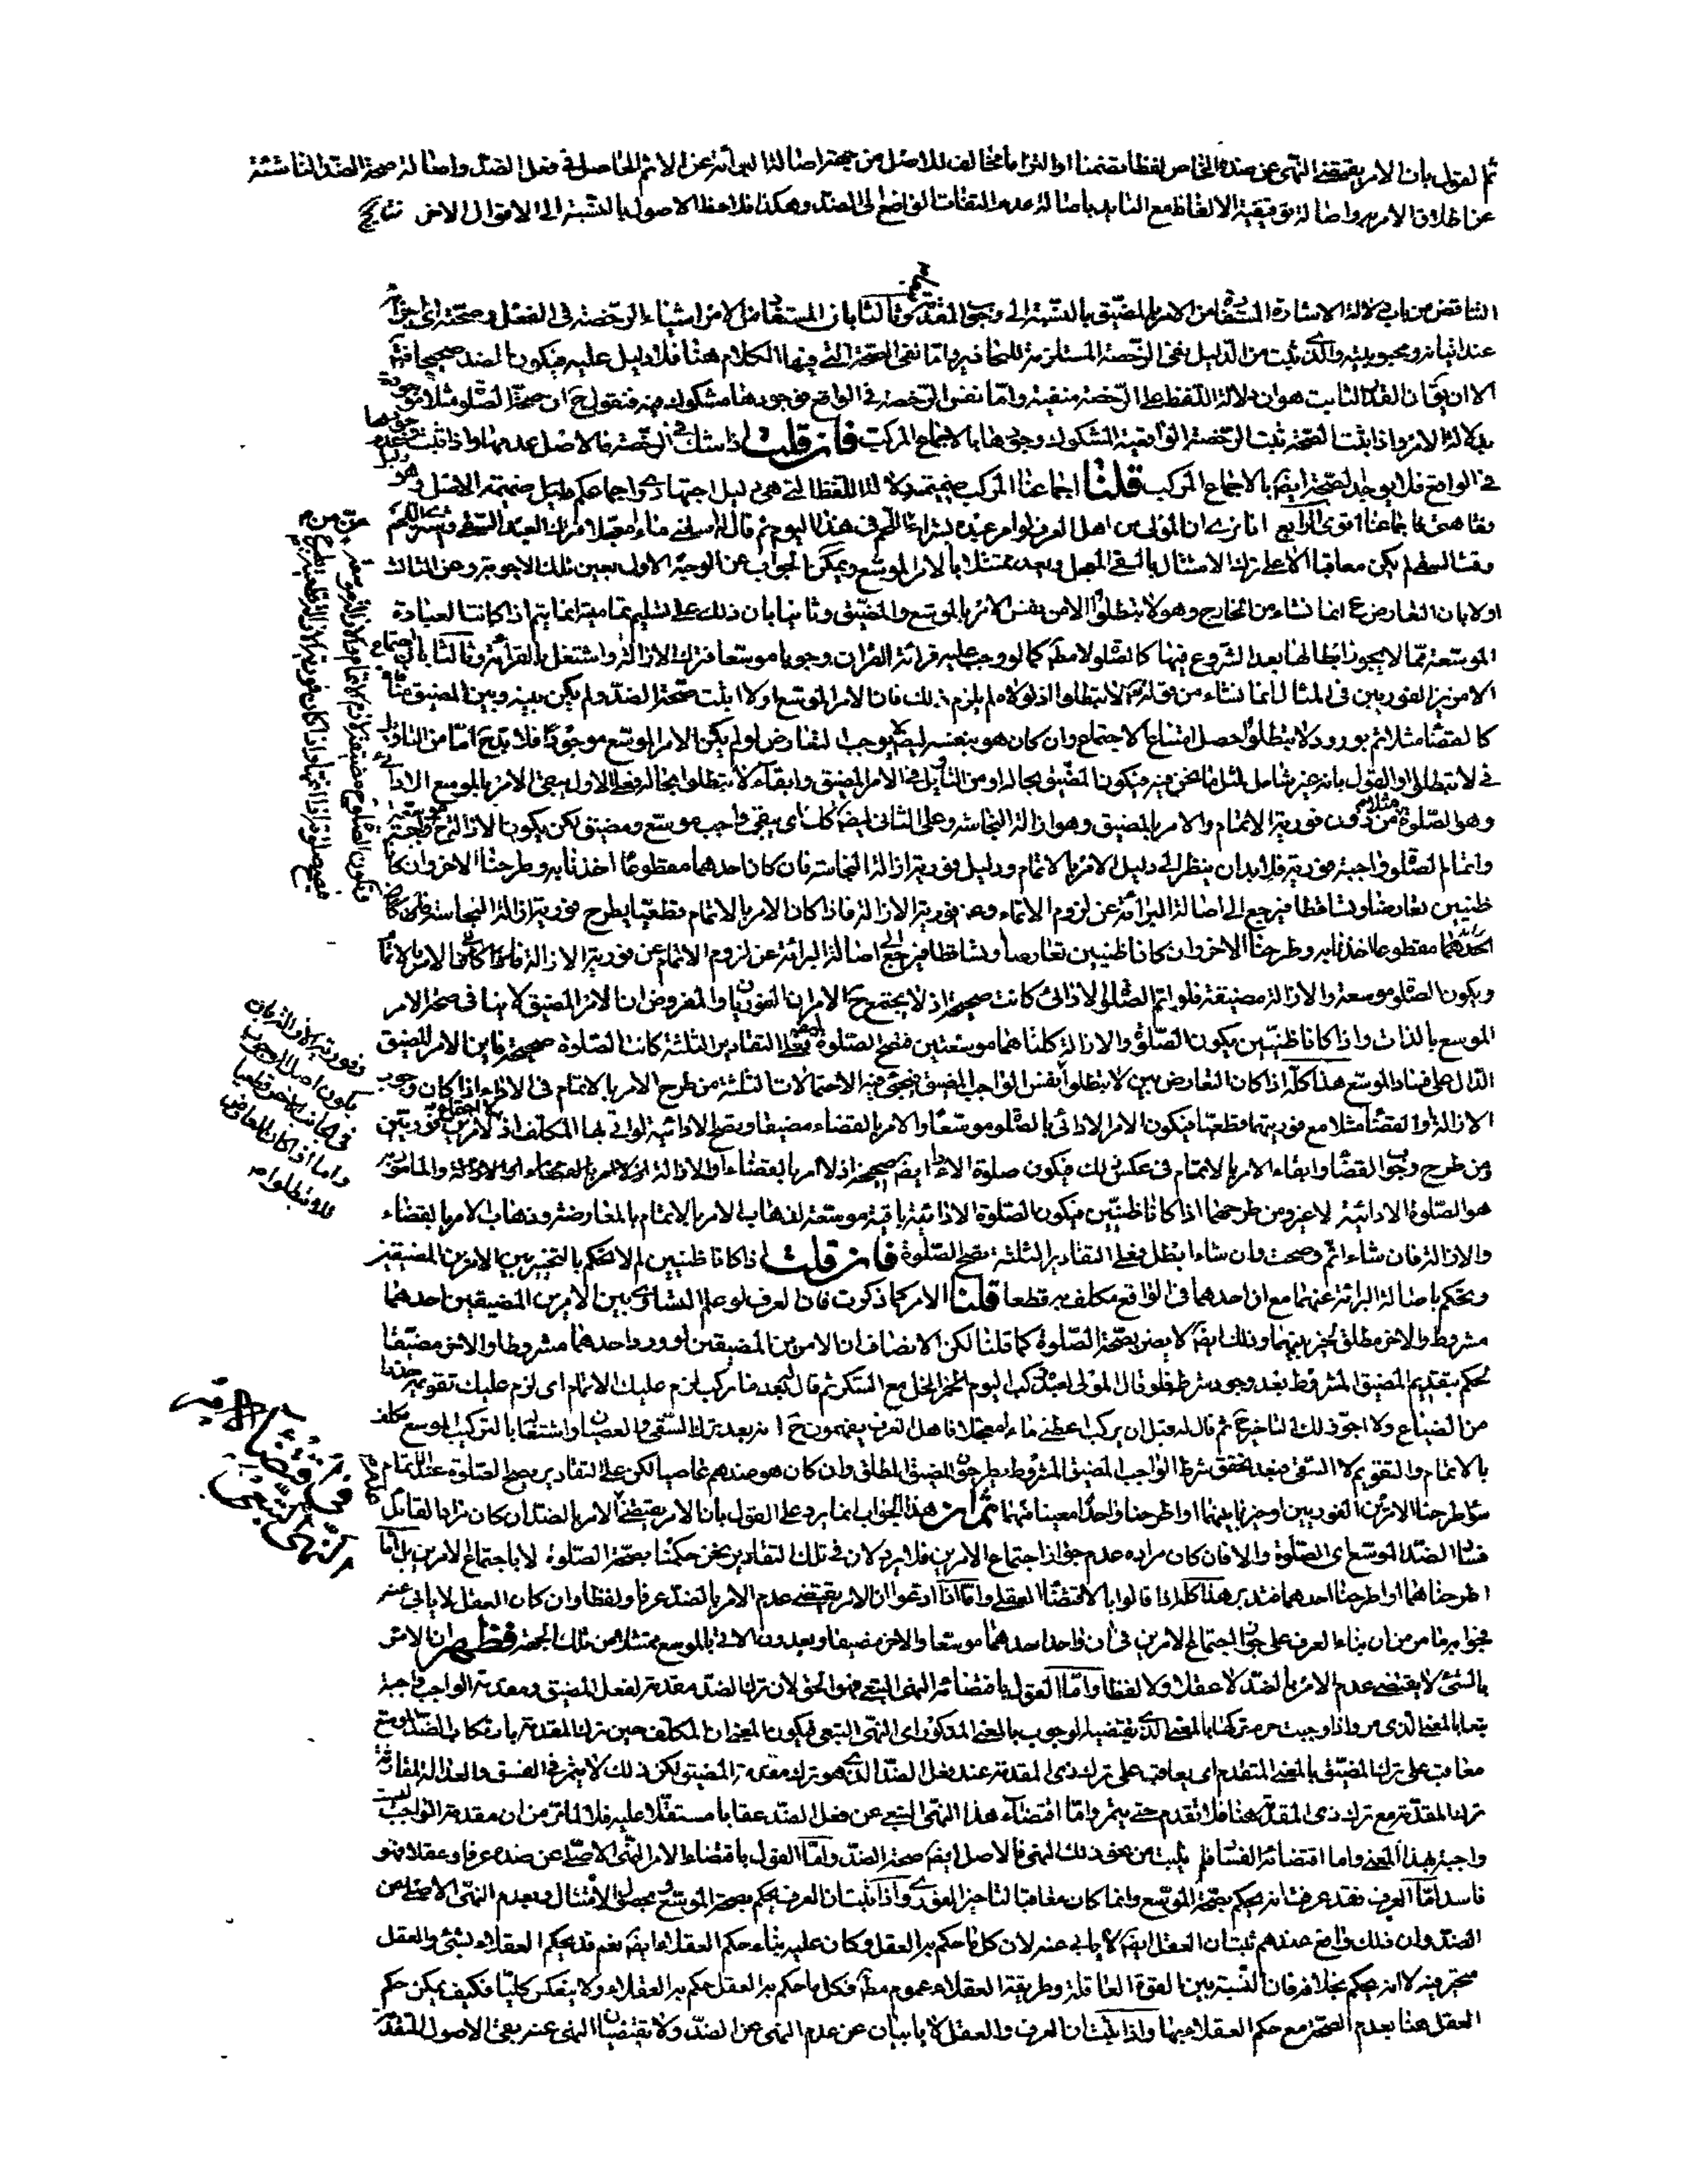 ثم القول بان الامر يقتضي النهي عن ضده الخاص لفظا تضمنا او التزاما مخالف للاصل من جهة اصالة البرائة عن الاثم الحاصل في فعل الضد واصالة صحة الضد الناشئة
عن اطلاق الامر به واصالة توقيفية الالفاظ مع التايد باصالة عدم التفات الواضع الى الضد وهكذا فلاحظ الاصول بالنسبة الى الاقوال الاخر نتايج
التناقض من باب دلالة الاشارة المستفادة من الامر بالمضيق بالنسبة الى وجوب المقدمة وثالثا بان المستفاد من الامر اشياء الرخصة في الفعل وصحته اي
عند اتيانه ومحبوبيته والذي ثبت من الدليل نفي الرخصة المستلزمة للصحة فيه واما نفي الصحة التي فيها الكلام هنا فلا دليل عليه فيكون الضد صحيحا
الا ان يقال ان القدر الثابت هو ان دلالة اللفظ على الرخصة منفية واما نفس الرخصة في الواقع فوجودها مشكوك فيه فنقول ح ان صحة الصلوة مثلا
بدلالة الامر واذا ثبت الصحة ثبت الرخصة الواقعية المشكوك وجودها بالاجماع المركب فان قلت اذا شك في الرخصة فالاصل عدمها واذا ثبت عدم
في الواقع فلا يوجد الصحة ايضا بالاجماع المركب قلنا اجماعنا المركب ضميمته دلالة اللفظ التي هي دليل اجتهادي واجماعكم دليل ضميمته الاصل وهو
فقاهتي فاجماعنا اقوى الرابع انا نرى ان المولى من اهل العرف لو امر عبده بشراء اللحم في هذا اليوم ثم قال له اسقني ماء معجلا فترك العبد السقي وشرى اللحم
وقت السقي لم يكن معاقبا الا على ترك الامتثال بالسقي المعجل ويعد ممتثلا بالامر الموسع ويمكن الجواب عن الوجه الاول بعين تلك الاجوبة وعن الثالث
اولا بان التعارض ح انما نشاء من الخارج وهو لا تبطلوا لا من نفس الامر بالموسع والمضيق وثانيا بان ذلك على تسليم تمامية انما يتم اذا كانت العبادة
الموسعة مما لا يجوز ابطالها بعد الشروع فيها كالصلوة لا مطلقا كما لو وجب عليه قرائة القران وجوبا موسعا فترك الازالة واشتغل بالقرائة وثالثا بان
الامرين الفوريين في المثال انما نشاء من قوله لا تبطلوا اذ لولاه لم يلزم ذلك فان الامر الموسع اولا اثبت صحة الضد ولم يكن بينه وبين المضيق
كالقضاء مثلا ثم بورود لا تبطلوا حصل امتناع الاجتماع وان كان هو بنفسه ايضا لا يوجب التعارض لو لم يكن الامر الموسع موجودا فلا بد ح اما من التاويل
في لا تبطلوا والقول بانه غير شامل لمثل ما نحن فيه فيكون المضيق بحاله او من التاويل في الامر المضيق وابقاء لا تبطلوا بحاله فعلى الاول يبقى الامر بالموسع
وهو الصلوة مثلا من دون فورية الاتمام والامر بالمضيق وهو ازالة النجاسة وعلى الثاني ايضا كك اي يبقى واجب موسع ومضيق لكن يكون الازالة ح
واتمام الصلوة واجبة فورية فلا بد ان ينظر الى دليل الامر بالاتمام ودليل فورية ازالة النجاسة فان كان احدهما مقطوعا اخذنا به وطرحنا الاخر وان كانا
ظنيين تعارضا وتساقطا فيرجع الى اصالة البرائة عن لزوم الاتمام وعن فورية الازالة فاذا كان الامر بالاتمام قطعيا يطرح فورية ازالة النجاسة
احدهما مقطوعا اخذنا به وطرحنا الاخر وان كانا ظنيين تعارضا وتساقطا فيرجع الى اصالة البرائة عن لزوم الاتمام عن فورية الازالة
ويكون الصلوة موسعة والازالة مضيقة فلو اتم الصلوة لا ذاك كانت صحيحة اذ لا يجتمع ح الامران الفوريان والمفروض ان الامر المضيق لا ينافي صحة الامر
الموسع بالذات واذا كانا ظنيين يكون الصلوة والازالة كلتاهما موسعتين فتصح الصلوة فعلى التقادير الثلثة كانت الصلوة صحيحة فاين الامر المضيق
الدال على فساد الموسع هذا كله اذا كان التعارض بين لا تبطلوا نفس الواجب المضيق فيجئ فيه الاحتمالات الثلثة من طرح الامر بالاتمام في الاداء اذا كان وجوب
الازالة والقضاء مثلا مع فوريتهما قطعيا فيكون الامر الادائي بالصلوة موسعا والامر بالقضاء مضيقا وتصح الادائية لو اتى بها المكلف
ومن طرح وجوب القضاء وابقاء الامر بالاتمام في عكس ذلك فيكون صلوة الاداء ايضا صحيحة اذ لا امر بالقضاء
هو الصلوة الادائية لا غير ومن طرحهما اذا كانا ظنيين فيكون الصلوة الادائية باقية موسعة لذهاب الامر بالاتمام بالمعارضة وذهاب الامر بالقضاء
والازالة فان شاء اتم وصحت وان شاء ابطل فعلى التقادير الثلثة تصح الصلوة فان قلت اذا كانا ظنيين لم لا تحكم بالتخيير بين الامرين المضيقين
وتحكم باصالة البرائة عنهما مع ان احدهما في الواقع مكلف به قطعا قلنا الامر كما ذكرت فان العرف لو علم التساوي بين الامرين المضيقين احدهما
مشروط والاخر مطلق يخير بينهما وذلك ايضا لا يضر بصحة الصلوة كما قلنا لكن الانصاف ان الامرين المضيقين لو ورد احدهما مشروطا والاخر مضيقا
يحكم بتقديم المضيق المشروط بعد وجود شرطه فلو قال المولى لعبده ركب اليوم الخل مع السكر ثم قال بعد ما ركب لزم عليك الاتمام اي لزم عليك تقويمه
من الضياع ولا اجوز ذلك التاخير ثم قال له قبل ان يركب اعطني ماء معجلا فاهل العرف يفهمون ح انه بعد ترك السقي والعصيان واشتغاله بالتركيب الموسع مكلف
بالاتمام والتقويم لا السقي فبعد تحقق شرط الواجب المضيق المشروط يطرحون المضيق المطلق وان كان هو عندهم عاصيا لكن على التقادير يصح الصلوة عند الاتمام
سواء طرحنا الامرين الفوريين او خيرنا بينهما او طرحنا واحدا معينا منهما ثم ان هذا الجواب انما يرد على القول بان الامر يقتضي الامر بالضد ان كان مراد القائل
فساد الضد الموسع اي الصلوة والا فان كان مراده عدم جواز اجتماع الامرين فلا يرد لان في تلك التقادير نحن حكمنا بصحة الصلوة لا باجتماع الامرين بل اما
اطرحناهما او اطرحنا احدهما فتدبر هذا كله اذا قالوا بالاقتضاء العقلي واما اذا ادعوا ان الامر يقتضي عدم الامر بالضد عرفا ولفظا وان كان العقل لا يابى عنه
فجوابه ما مر من ان بناء العرف على جواز اجتماع الامرين في ان واحد احدهما موسعا والاخر مضيقا ويعدون الاتي بالموسع ممتثلا من تلك الجهة فظهر ان الامر
بالشئ لا يقتضي عدم الامر بالضد لا عقلا ولا لفظا واما القول باقتضائه النهي التبعي فهو الحق لان ترك الضد مقدمة لفعل المضيق ومقدمة الواجب واجبة
تبعا بالمعنى الذي مر واذا وجبت حرم تركها بالمعنى الذي يقتضيه الوجوب بالمعنى المذكور اي النهي التبعي فيكون المعنى ان المكلف حين ترك المقدمة بارتكاب الضد الموسع
معاقب على ترك المضيق بالمعنى المتقدم اي يعاقب على ترك ذي المقدمة عند فعل الضد الذي هو ترك مقدمة المضيق لكن ذلك لا يثمر في الفسق والعدالة لمقارنة
ترك المقدمة مع ترك ذي المقدمة هنا فلا تقدم حتى يثمر واما اقتضاء هذا النهي التبعي عن فعل الضد عقابا مستقلا عليه فلا لما مر من ان مقدمة الواجب ليست
واجبة بهذا المعنى واما اقتضائه الفساد فلم يثبت من نحو ذلك النهي فالاصل ايضا صحة الضد واما القول باقتضاء الامر النهي الاصلي عن ضده عرفا وعقلا فهو
فاسد اما العرف فقد عرفت انه يحكم بصحة الموسع وانما كان معاقبا لتاخير الفوري واذا ثبت ان العرف يحكم بصحة الموسع وبحصول الامتثال وبعدم النهي الاصلي عن
الضد وان ذلك واضح عندهم ثبت ان العقل ايضا لا يابى عنه لان كل ما حكم به العقل وكان عليه بناء حكم العقلاء ايضا نعم قد يحكم العقلاء بشئ والعقل
متحير فيه لا انه يحكم بخلافه فان النسبة بين القوة العاقلة وطريقة العقلاء عموم مطلق فكل ما حكم به العقل حكم به العقلاء ولا ينعكس كليا فكيف يمكن حكم
العقل هنا بعدم الصحة مع حكم العقلاء بها واذا ثبت ان العرف والعقل لا يابيان عن عدم النهي عن الضد ولا يقتضيان النهي عنه بقي الاصول المتقدمة
وفورية الازالة فان
يكون اصل الوجوب
في الجانب الاخر قطعيا
واما اذا كان التعارض
في اقتضاء الامر
النهي التبعي